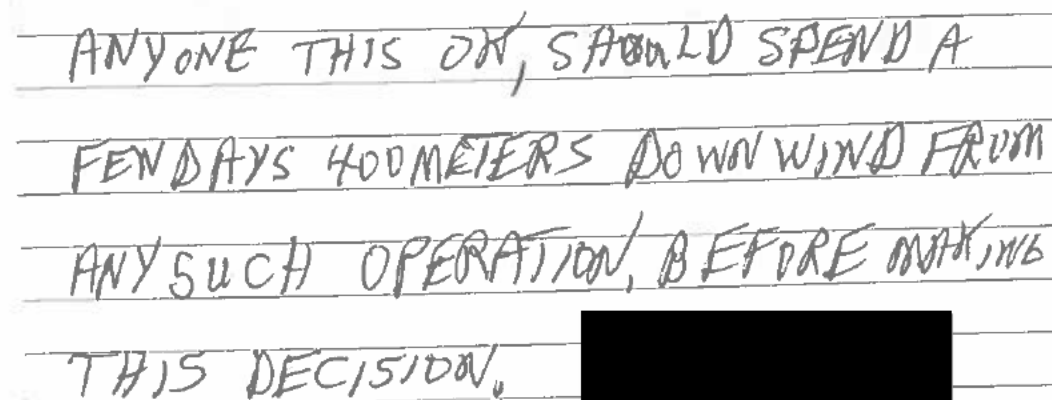 ANYONE THIS ON, SHOULD SPEND A
FEW DAYS 400 METERS DOWN WIND FROM
ANY SUCH OPERATION, BEFORE MAKING
THIS DECISION.